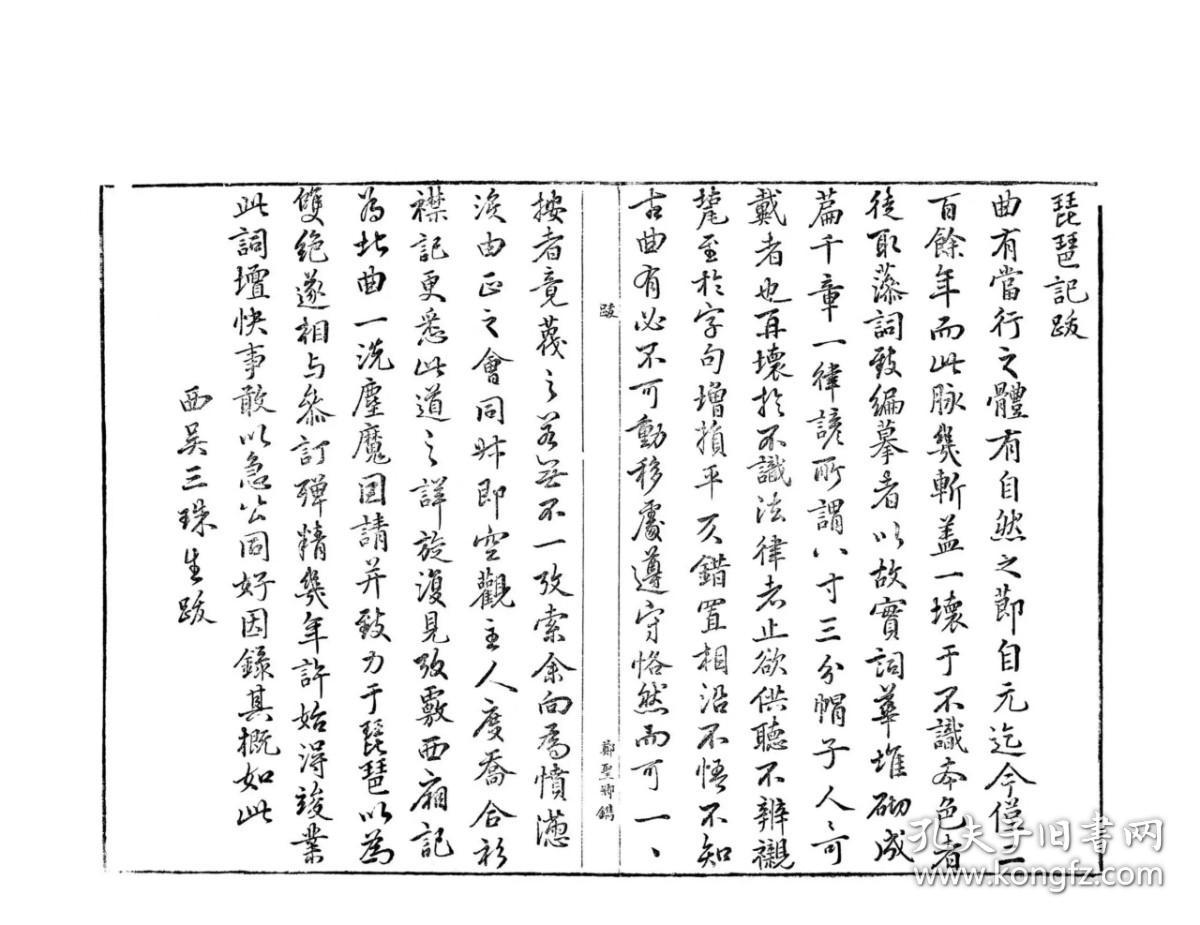 琵琶記跋
曲有當行之體有自然之節自元迄今僅三
百餘年而此脉幾斬盖一壞于不識本色者
徒取藻詞致編摹者以故實詞華堆砌成
篇千章一律諺所謂八寸三分帽子人〻可
戴者也再壞於不識法律者止欲供聽不辨襯
墊至於字句增損平仄錯置相沿不悟不知
古曲有必不可動移處遵守恪然而可一、
跋
鄭聖卿鐫
按者竟蔑之若無不一攷索余向爲憤懣
淚由正之會同叔即空觀主人度喬合衫
襟記更悉此道之詳旋復見攷覈西廂記
為北曲一洗塵魔因請并致力于琵琶以為
雙絶遂相与叅訂殫精幾年許始得竣業
此詞壇快事敢以急公同好因錄其概如此
西吴三珠生跋
孔夫子旧书网
www.kongfz.com